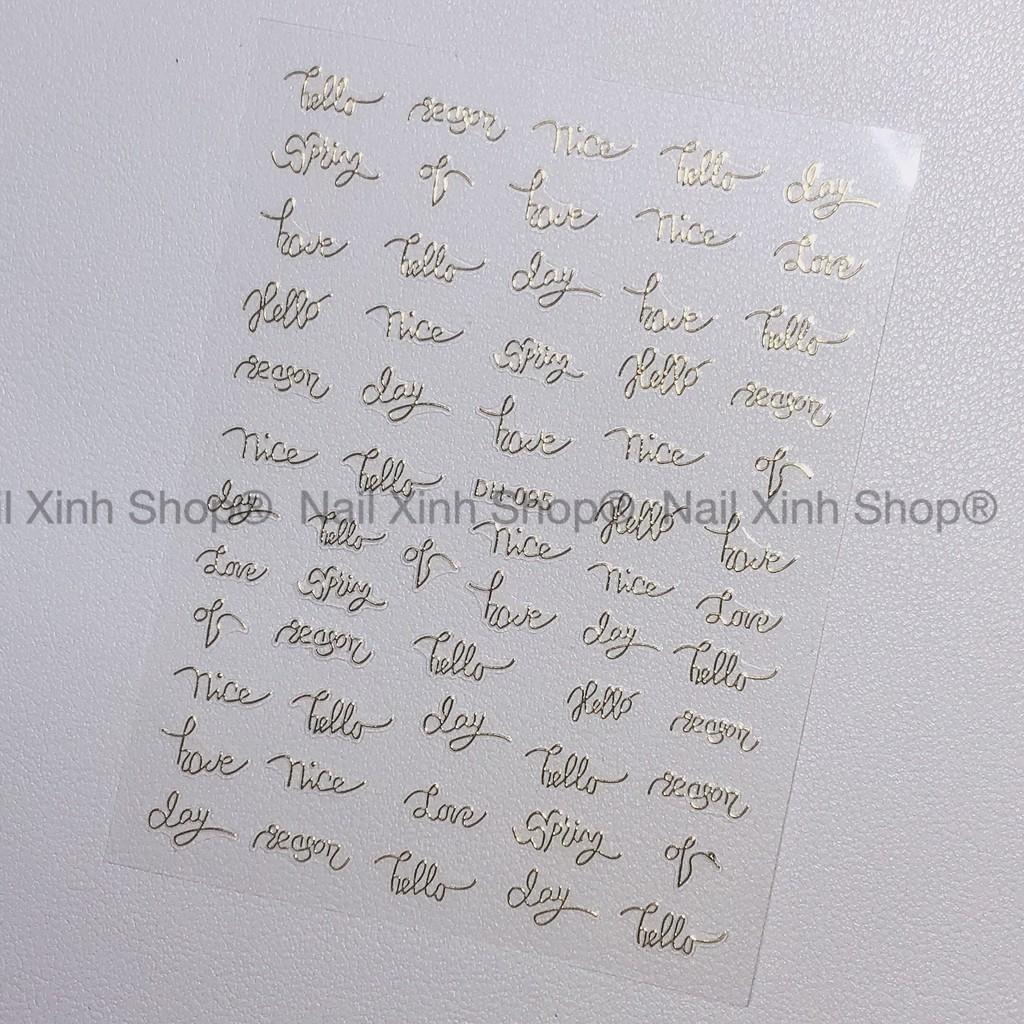 hello reason nice hello day
Spring of have nice Love
have hello day have hello
Hello nice Spring Hello reason
reason day have nice of
nice hello DH-095 Hello have
l Xinh Shop® Nail Xinh Shop® Nail Xinh Shop®
day hello of nice nice Love
Love Spring have day hello
of reason hello Hello reason
nice hello day hello reason
have nice Love Spring of
day reason hello day hello